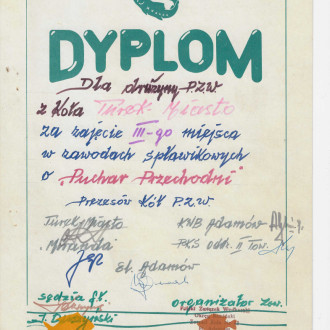 DYPLOM
Dla drużyny P.Z.W
z Koła Turek-Miasto
za zajęcie III-go miejsca
w zawodach spławikowych
o "Puchar Przechodni"
Prezesów Kół P.Z.W
Turek Miasto
KWB Adamów
PKS Odd. II Tow.
El. Adamów
sędzia gł.
organizator zaw.
Polski Związek Wędkarski